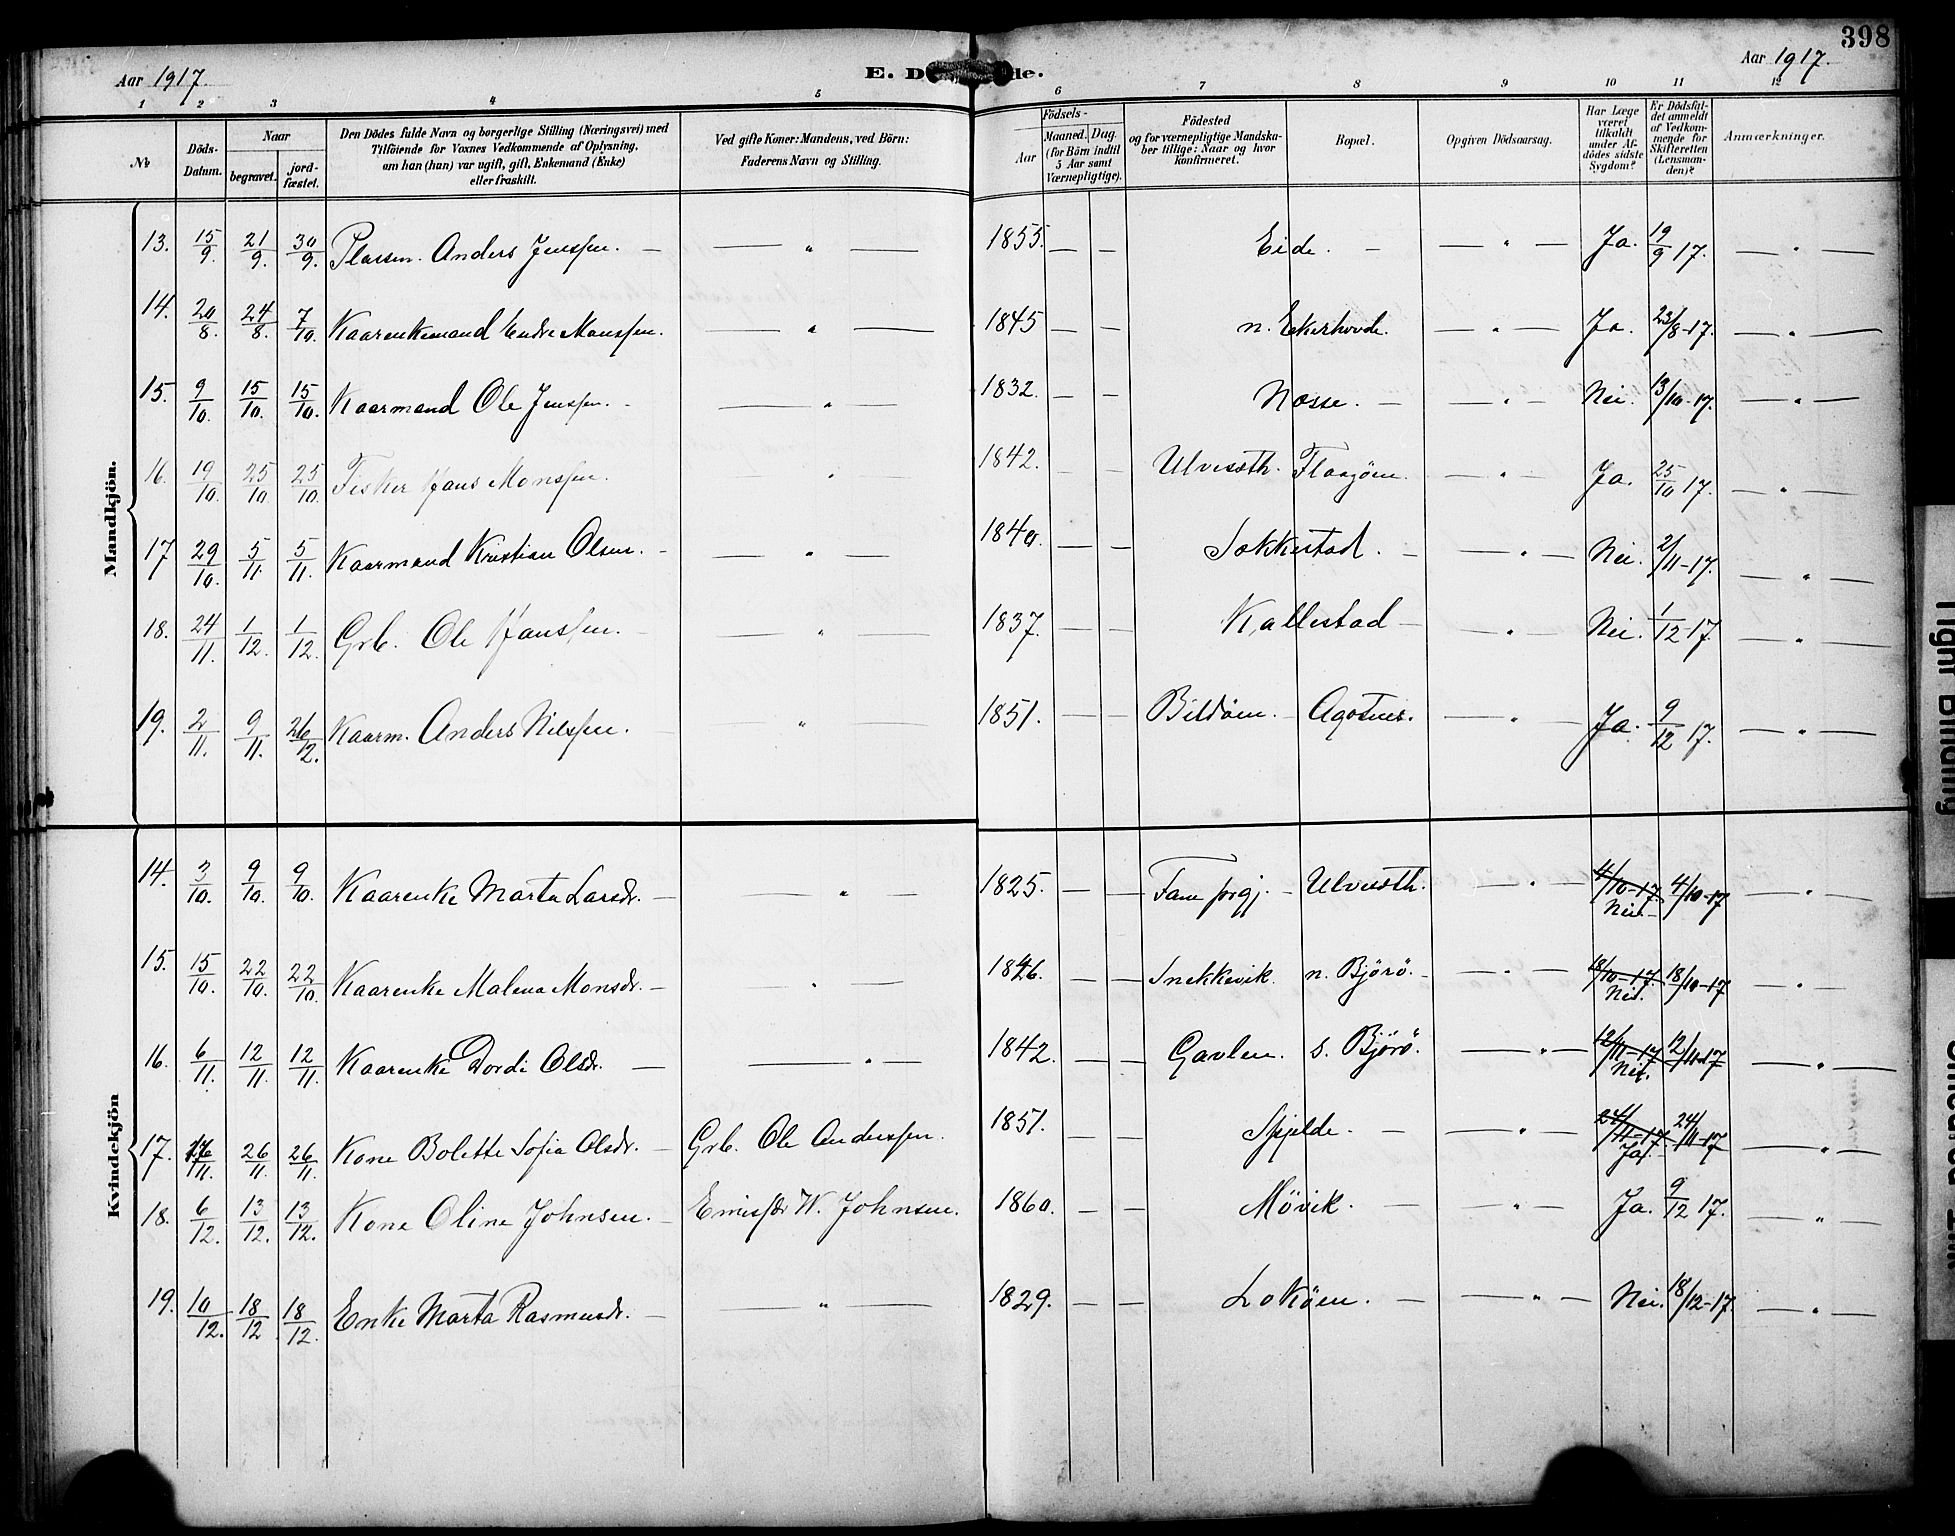 398
Aar 1917. E. D de. Aar 1917.
1 2 3 4 5 6 7 8 9 10 11 12
№ Döds-Datum. Naar begravet. jord-fæstet. Den Dödes fulde Navn og borgerlige Stilling (Næringsvei) med Tilföiende for Voxnes Vedkommende af Oplysning, om han (hun) var ugift, gift, Enkemand (Enke) eller fraskilt. Ved gifte Koner: Mandens, ved Börn: Faderens Navn og Stilling. Födsels- Aar Maaned. Dag. (for Börn indtil 5 Aar samt Værnepligtige). Födested og for værnepligtige Mandskaber tillige: Naar og hvor konfirmeret. Bopæl. Opgiven Dödsaarsag. Har Læge været tilkaldt under Afdödes sidste Sygdom? Er Dödsfaldet anmeldt af Vedkommende for Skifteretten (Lensmanden)? Anmærkninger.
Mandkjön.
13. 15/9. 21/9. 30/9. Plassm. Anders Jenssen. — — " — 1855. — — Eide. — — " — Ja. 19/9 17. — " —
14. 20/8. 24/8. 7/10. Kaarenkemand Endre Monssen. — " — 1845 — — n. Ekerhovde. — " — Ja. 23/8-17. — " —
15. 9/10. 15/10. 15/10. Kaarmand Ole Jenssen. — — " — 1832. — — Nesse. — — " — Nei. 13/10-17. — " —
16. 19/10. 25/10. 25/10. Fisker Hans Monssen. " 1842. — — Ulvesth. Flaagöen. — " — Ja. 25/10 17. — " —
17 29/10. 5/11. 5/11. Kaarmand Kristian Olsen. — — " — 1840. — — Sokkestad. — — " — Nei. 2/11-17. — " —
18. 24/11. 1/12. 1/12. Grb. Ole Hanssen. — — " — 1837. — — Kallestad — — " — Nei. 1/12 17. — " —
19. 2/11. 9/11. 26/12. Kaarm. Anders Nilssen. — — " — 1851. — — Bildöen. — Agotnes. — " — Ja. 9/12 17. — " —
Kvindekjön
14. 3/10. 9/10. 9/10. Kaarenke Marta Larsdr. — — " — 1825. — — Fane prgj. — Ulvesth. — " — 4/10-17. Nei. 4/10-17 — " —
15. 15/10. 22/10. 22/10. Kaarenke Malena Monsdr. — — " — 1846. — — Snekkevik. n. Björö. — — " — 18/10-17. Nei. 18/10-17 — " —
16. 6/11. 12/11. 12/11. Kaarenke Dordi Olsdr. — — " — 1842. — — Gavlen. s. Björö. — " — 12/11-17 Nei. 12/11-17 — " —
17. /11. 26/11. 26/11. Kone Bolette Sofia Olsdr. — Grb. Ole Anderssen. 1851. — — Spjelde. — — " — 24/11-17 Ja. 24/11-17 — " —
18. 6/12. 13/12. 13/12. Kone Oline Johnsen. — W. Johnsen. 1860. — — Mövik. — — " — Ja. 9/12 17. — " —
19. 10/12. 18/12 18/12. Enke Marta Rasmusdr. — — " — 1829. — — Loköen. — — " — Nei. 18/12-17 — " —
Tight Binding